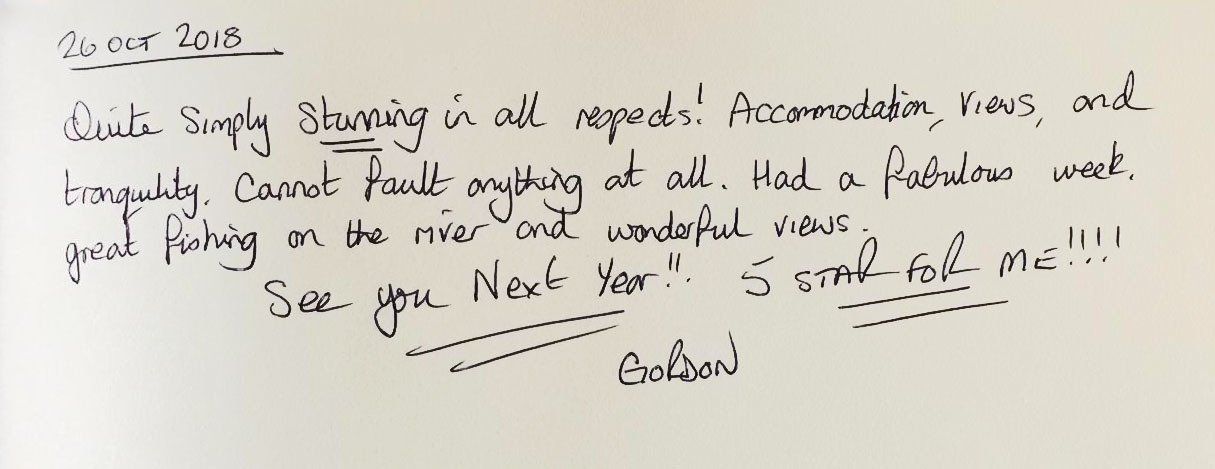 26 OCT 2018
Quite Simply Stunning in all respects! Accommodation, views, and
tranquility. Cannot fault anything at all. Had a fabulous week.
great fishing on the river and wonderful views.
See you Next Year!! 5 STAR FOR ME!!!!
GORDON